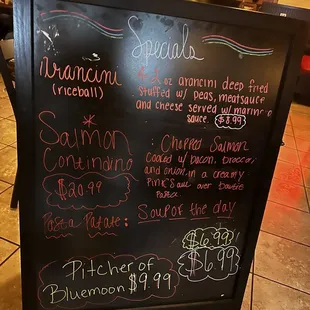 Specials
Arancini
(riceball)
oz arancini deep fried
stuffed w/ peas, meatsauce
and cheese served w/ marinara
sauce. $8.99
Salmon
Contindino
$20.99
: Chopped Salmon
Cooked w/ bacon, broccoli
and onion in a creamy
Pink Sauce over bowtie
Pasta
Pasta Patate:
Soup of the day
$6.99
$6.99
Pitcher of
Bluemoon $9.99